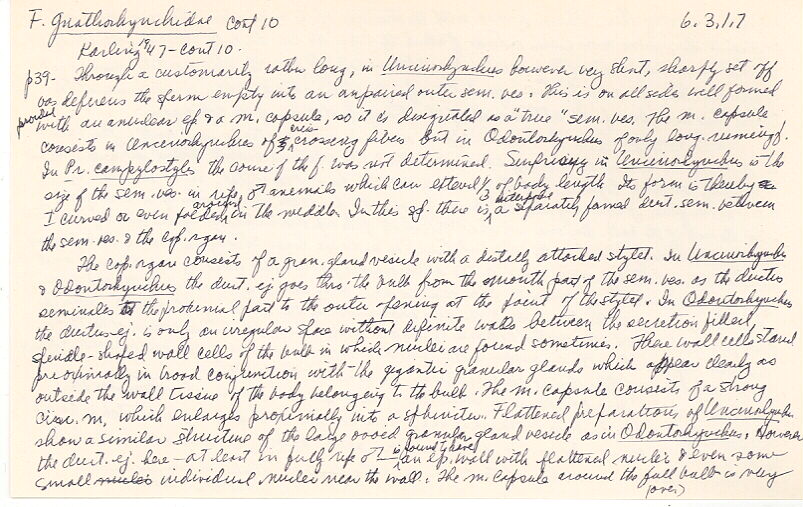 F. Gnathorhynchidae cont 10
6.3.1.7
Karling '47 - cont 10.
p39- Through a customarily rather long, in Uncinorhynchus however very short, sharply set off
vas deferens the sperm empty into an unpaired outer sem. ves. This is on all sides well formed
provided with an annular ep & a m. capsule, so it is designated as a "true" sem. ves. The m. capsule
consists in Uncinorhynchus of criss-crossing fibers but in Odontorhynchus of only long. running f.
In Pr. campylostylus the course of the f. was not determined. Surprising in Uncinorhynchus is the
size of the sem. ves. in ripe ♂ animals which can extend 1/3 of body length Its form is thereby
I curved or even folded around in the middle. In this sp. there is interposed a separately formed duct. sem. between
the sem. ves. & the cop. organ.
The cop. organ consists of a gran. gland vesicle with a distally attached stylet. In Uncinorhynchus
& Odontorhynchus the duct. ej. goes thru' the bulb from the mouth part of the sem. ves. as the ductus
seminalis at the proximal part to the outer opening at the point of the stylet. In Odontorhynchus
the ductus ej. is only an irregular space without definite walls between the secretion filled,
spindle-shaped wall cells of the bulb in which nuclei are found sometimes. These wall cells stand
proximally in broad conjunction with the gigantic granular glands which appear clearly as
outside the wall tissue of the body belonging to the bulb. The m. capsule consists of a strong
circ. m, which enlarges proximally into a sphincter. Flattened preparations of Uncinorhynchus
show a similar structure of the large ovoid granular gland vesicle as in Odontorhynchus. However
the duct. ej. here - at least in fully ripe ♂ - is found to have an ep. wall with flattened nuclei & even some
small nuclei individual nuclei near the wall. The m. capsule around the full bulb is very
(over)